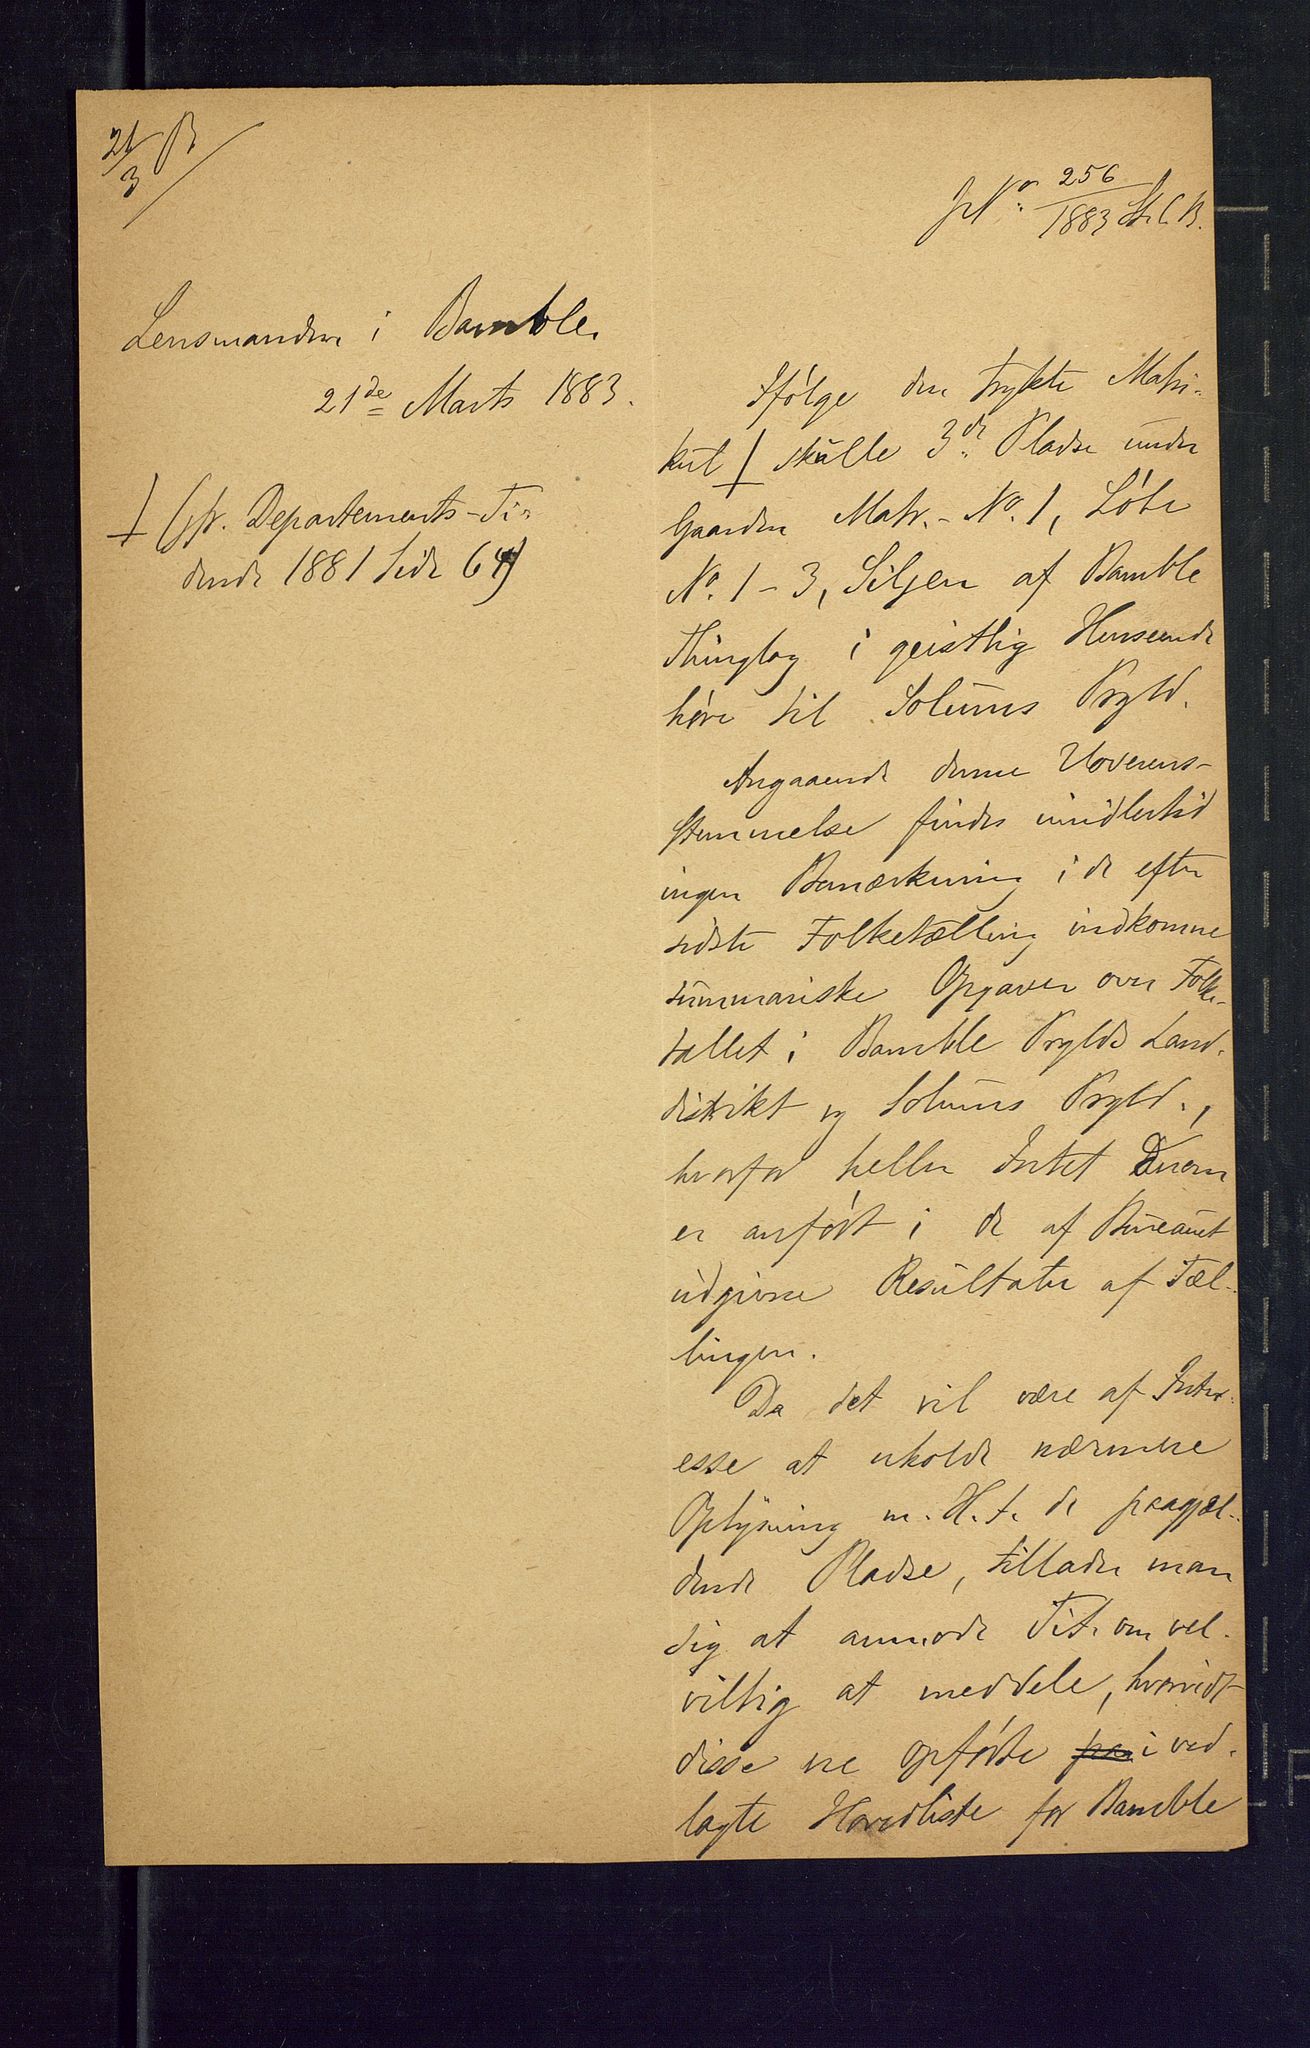 21/3 B
JNo. 256/1883 St. C. B.
Lensmanden i Bamble.
21de Marts 1883.
† (jfr. Departements-Ti-
dende 1881 Side 64)
Ifølge den trykte Matri-
kul † skulle 3de Pladse under
Gaarden Matr.-No. 1, Løbe
No. 1-3, Siljen af Bamble
Thinglag i geistlig Henseende
høre til Solums Prgld.
Angaaende denne Uoverens-
stemmelse findes imidlertid
ingen Bemærkning i de efter
sidste Folketælling indkomne
summariske Opgaver over Folke-
tallet i Bamble Prglds Land-
distrikt og Solums Prgld.,
hvorfor heller Intet Derom
er anført i de af Bureauet
udgivne Resultater af Tæl-
lingen.
Da det vil være af Inter-
esse at erholde nærmere
Oplysning m. H. t. de paagjæl-
dende Pladse, tillader man
sig at anmode Tit. om vel-
villig at meddele, hvorvidt
disse ere opførte paa i ved-
lagte Hovedliste for Bamble